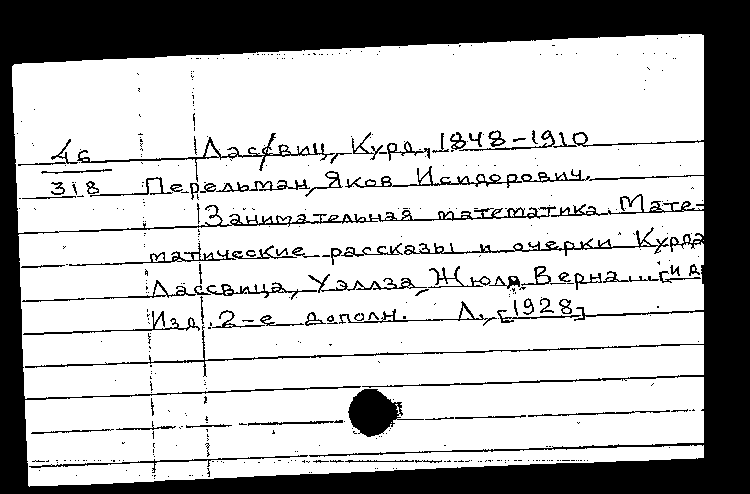 46
318
Лассвиц, Курд, 1848-1910
Перельман, Яков Исидорович.
Занимательная математика. Мате-
матические рассказы и очерки Курда
Лассвица, Уэллза, Жюля Верна... [и д
Изд. 2-е дополн. Л., [1928]